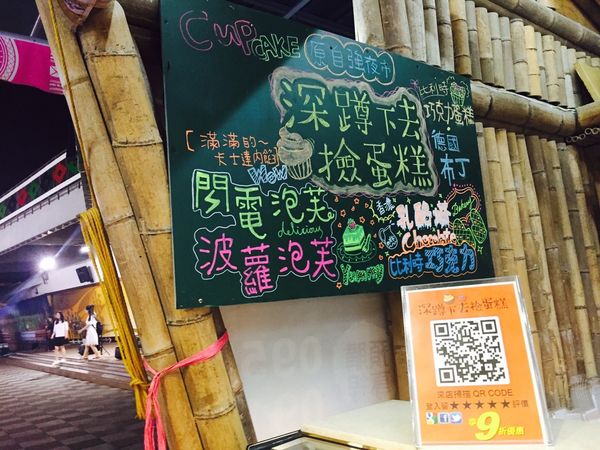 CUPCAKE 原自強夜市
深蹲下去
撿蛋糕
[滿滿的～
卡士達內餡]
閃電泡芙
delicious
波蘿泡芙
Yummy
比利時
巧克力蛋糕
德國
布丁
香濃
乳酪
Chocolate
比利時 巧克力
深蹲下去撿蛋糕
來店掃描 QR CODE
登入留★★★★★評價
享9折優惠